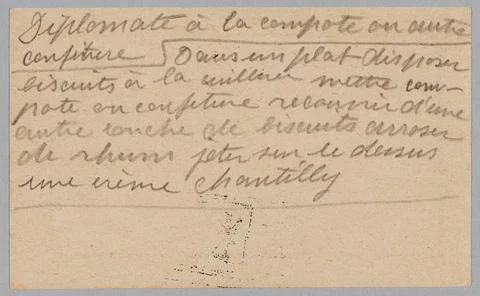 Diplomate à la compote ou autre
confiture Dans un plat disposer
biscuits à la cuiller mettre com-
pote ou confiture recouvrir d'une
autre couche de biscuits arroser
de rhum jeter sur le dessus
une crème chantilly